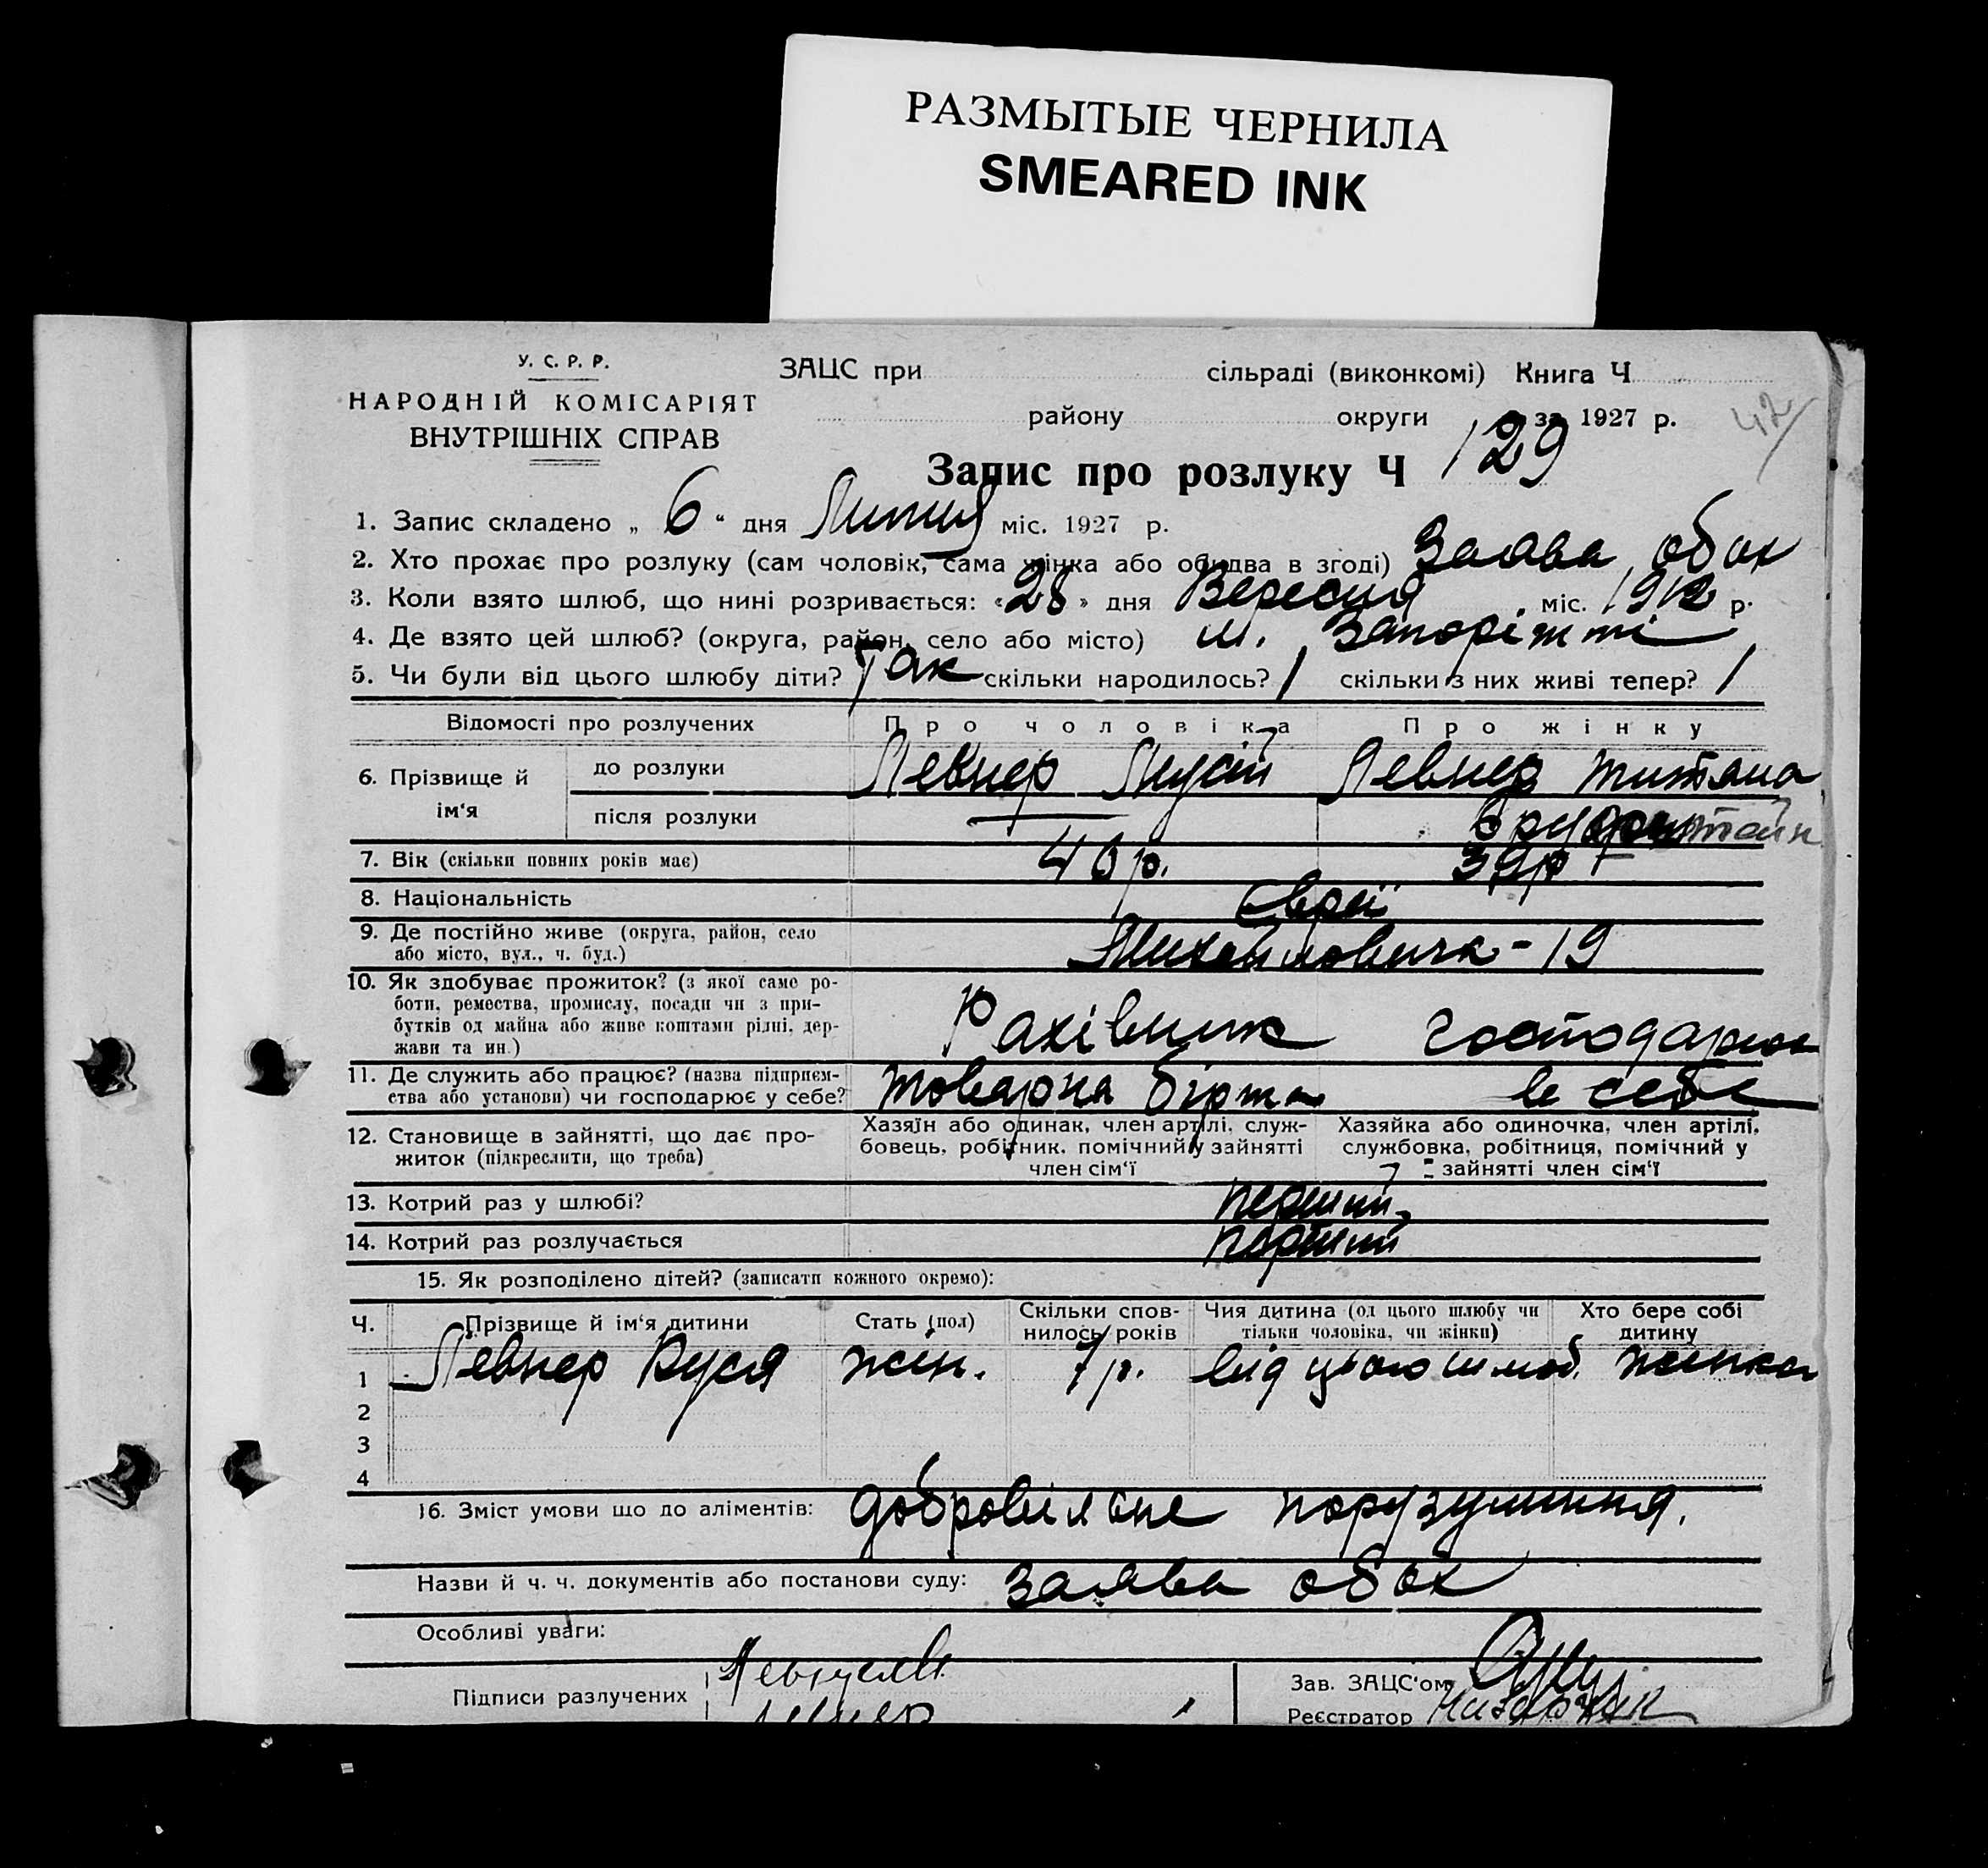 РАЗМЫТЫЕ ЧЕРНИЛА
SMEARED INK
У. С. Р. Р.
НАРОДНІЙ КОМІСАРІЯТ
ВНУТРІШНІХ СПРАВ
ЗАЦС при сільраді (виконкомі) Книга Ч
району округи за 1927 р.
42
Запис про розлуку Ч 129
1. Запис складено „ 6 “ дня Липня міс. 1927 р.
2. Хто прохає про розлуку (сам чоловік, сама жінка або обидва в згоді) Заява обох
3. Коли взято шлюб, що нині розривається: « 28 » дня Вересня міс. 1912 р.
4. Де взято цей шлюб? (округа, район, село або місто) м. Запоріжжі
5. Чи були від цього шлюбу діти? Так скільки народилось? 1 скільки з них живі тепер? 1
Відомості про розлучених Про чоловіка Про жінку
6. Прізвище й ім‘я до розлуки Певнер Мусій Певнер
після розлуки —
7. Вік (скільки повних років має) 40 р. 39 р
8. Національність Євреї
9. Де постійно живе (округа, район, село
або місто, вул., ч. буд.) - 19
10. Як здобуває прожиток? (з якої саме ро-
боти, ремества, промислу, посади чи з при-
бутків од майна або живе коштами рідні, дер-
жави та ин.) Рахівник Господарює
11. Де служить або працює? (назва підприєм-
ства або установи) чи господарює у себе? Товарна біржа в себе
12. Становище в зайнятті, що дає про-
житок (підкреслити, що треба)
Хазяїн або одинак, член артілі, служ-
бовець, робітник, помічний у зайнятті
член сім‘ї
Хазяйка або одиночка, член артілі,
службовка, робітниця, помічний у
зайнятті член сім‘ї
13. Котрий раз у шлюбі? перший
14. Котрий раз розлучається перший
15. Як розподілено дітей? (записати кожного окремо):
Ч. Прізвище й ім‘я дитини Стать (пол) Скільки спов-
нилось років Чия дитина (од цього шлюбу чи
тільки чоловіка, чи жінки) Хто бере собі
дитину
1 Певнер Буся жін. 7 р. від цього шлюб. жинка
2
3
4
16. Зміст умови що до аліментів: добровільне порузуминня.
Назви й ч. ч. документів або постанови суду: заява обох
Особливі уваги:
Підписи разлучених Певнер
Зав. ЗАЦС‘ом
Реєстратор